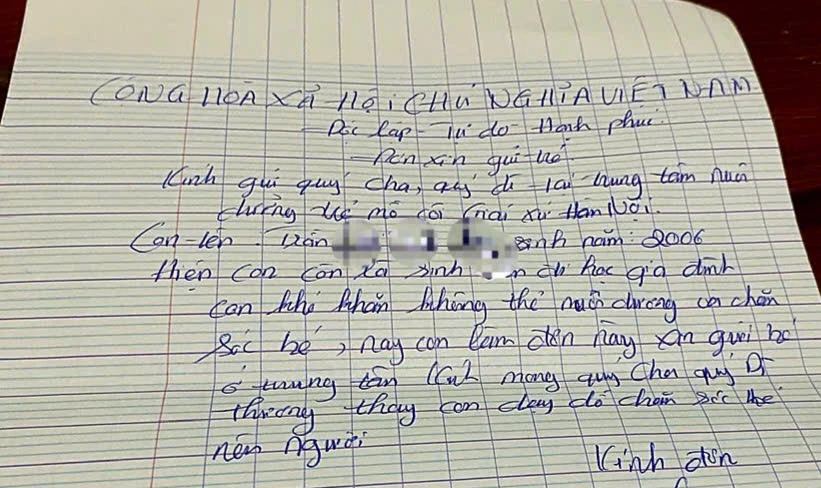 CỘNG HOÀ XÃ HỘI CHỦ NGHĨA VIỆT NAM
Độc lập - Tự do - Hạnh phúc.
- Đơn xin gửi trẻ.
Kính gửi quý cha, quý dì tại trung tâm nuôi
dưỡng trẻ mồ côi Giáo xứ
Con tên: Trần sinh năm: 2006
Hiện con còn sinh đi học gia đình
con khó khăn không thể nuôi dưỡng và chăm
sóc bé, nay con làm đơn này xin gửi bé
ở trung tâm Kính mong quý Cha quý Dì
thương thay con dạy dỗ chăm sóc bé
nên người
Kính đơn